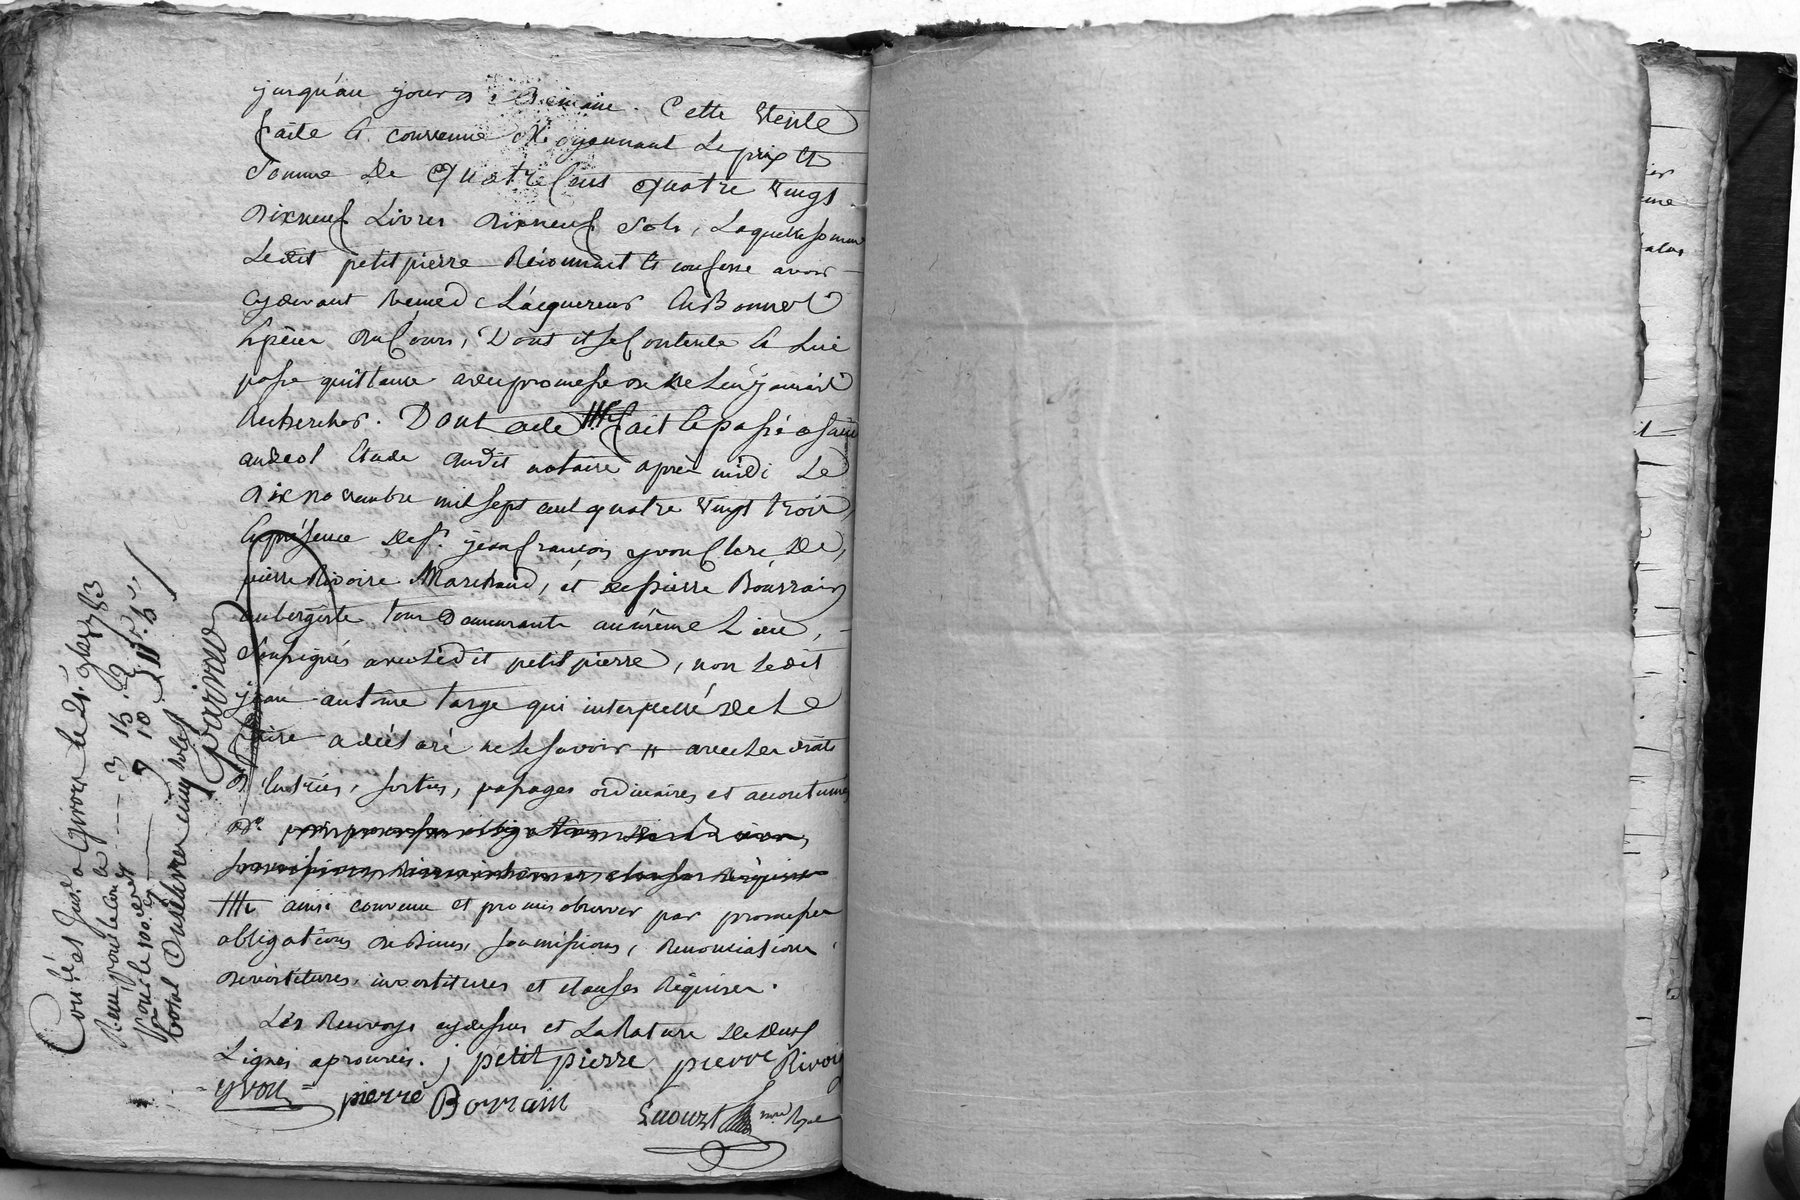 jusqu'au jour a Demain. Cette Vente
faite et convenue Moyennant Le prix et
Somme De Quatre Cens quatre vingt
dixneuf Livres dixneuf Sols, Laquelle somme
Ledit petitpierre Reconnait et confesse avoir
cydevant de L'acquereur en Bonnes
Espèces du Cours, Dont il se Contente et Lui
passe quittance avec promesse de ne Lui jamais
rechercher. Dont acte fait et passé a saint
andeol Etude dudit notaire après midi Le
dix novembre mil sept cent quatre vingt trois,
En présence de sr. jean françois yvon Clerc De,
pierre Rivoire Marchand, et de pierre Bourrain
aubergiste tous Demeurants au même Lieu,
soussignés avec Ledit petit pierre, non Ledit
jean antoine targe qui interpellé de Le
faire a déclaré ne Le savoir # avec Les droits
d'Entrées, sorties, passages ordinaires et accoutumés
ainsi convenu et promis observer par promesses
obligations de Biens, soumissions, Renonciations
devestitures, investitures et clauses Réquises.
Les Renvoys cydessus et La Rature De deux
Lignes aprouvés. j petit pierre pierre Rivoir
yvon pierre Borrain
nre. Royal
Contrôlé et Insé a Givors le 21. 9bre 1783
Reçu pour le Con.le 3 15
pour le 100.e
total livres cinq sols